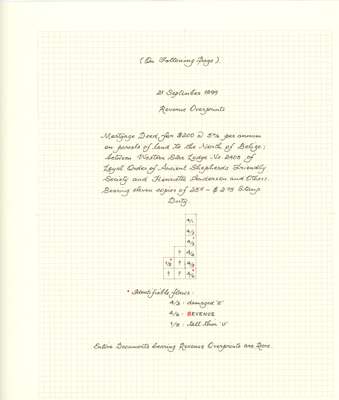 (On Following Page)
21 September 1899
Revenue Overprints
Mortgage Deed, for $200 @ 5% per annum
on parcels of land to the North of Belize;
between Western Star Lodge No 2408 of
Loyal Order of Ancient Shepherds Friendly
Society and Henrietta Anderson and Others.
Bearing eleven copies of 25c = $2.75 Stamp
Duty.
4/1
4/2
4/3
? 4/4
1/5 ? 4/5
? ? 4/6
* Identifiable flaws:
4/3 : damaged 'E'
4/6 : REVENUE
1/5 : tall thin 'U'
Entire Documents bearing Revenue Overprints are Rare.